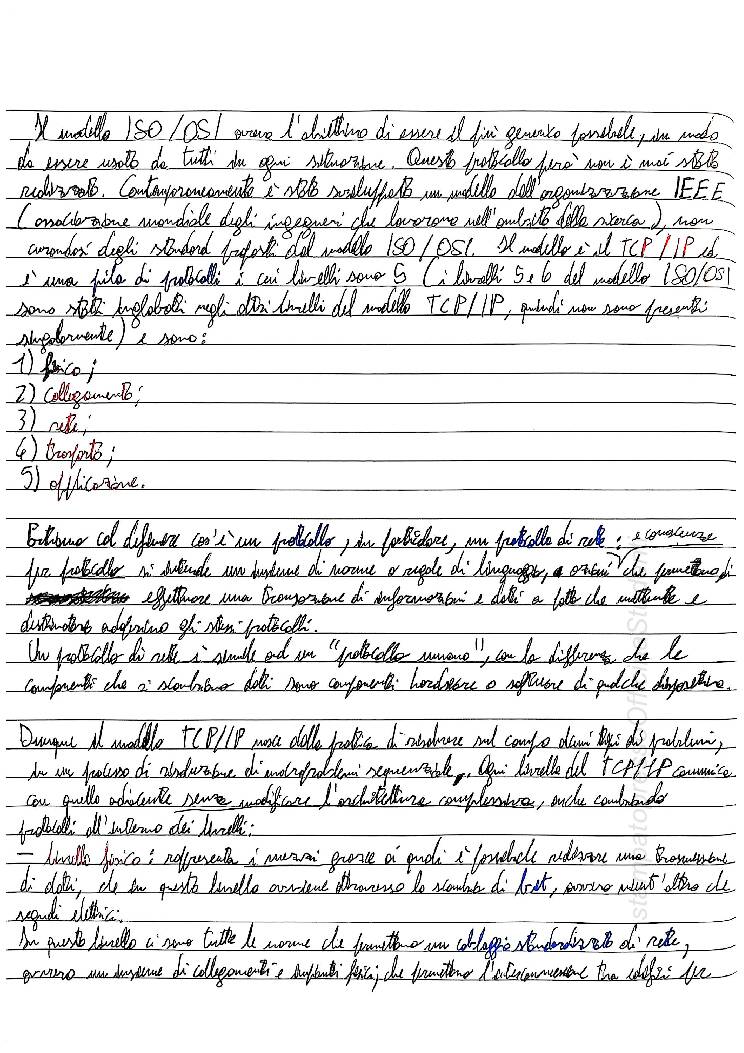 Il modello ISO/OSI aveva l'obiettivo di essere il più generico possibile, in modo
da essere usato da tutti in ogni situazione. Questo protocollo però non è mai stato
realizzato. Contemporaneamente è stato sviluppato un modello dall'organizzazione IEEE
(associazione mondiale degli ingegneri che lavorano nell'ambito della ricerca), non
curandosi degli standard proposti dal modello ISO/OSI. Il modello è il TCP/IP ed
è una pila di protocolli i cui livelli sono 5 (i livelli 5 e 6 del modello ISO/OSI
sono stati inglobati negli altri livelli del modello TCP/IP, quindi non sono presenti
singolarmente) e sono:
1) fisico;
2) collegamento;
3) rete;
4) trasporto;
5) applicazione.
col definire cos'è un protocollo, in particolare, un protocollo di rete: e conoscenze
per protocollo si intende un insieme di norme o regole di linguaggio, o azioni che permettono di
effettuare una transazione di informazioni e dati a patto che mittente e
destinatario adoperino gli stessi protocolli.
Un protocollo di rete è simile ad un "protocollo umano", con la differenza che le
componenti che si scambiano dati sono componenti hardware o software di qualche dispositivo.
Dunque il modello TCP/IP nasce dalla pratica di risolvere sul campo alcuni tipi di problemi,
in un processo di risoluzione di macroproblemi sequenziale. Ogni livello del TCP/IP comunica
con quello adiacente senza modificare l'architettura complessiva, anche cambiando
protocolli all'interno dei livelli:
- livello fisico: rappresenta i mezzi grazie ai quali è possibile realizzare una trasmissione
di dati, che in questo livello avviene attraverso lo scambio di bit, ovvero nient'altro che
segnali elettrici.
In questo livello ci sono tutte le norme che permettono un cablaggio standardizzato di rete,
ovvero un insieme di collegamenti e impianti fisici, che permettono l'interconnessione tra edifici per